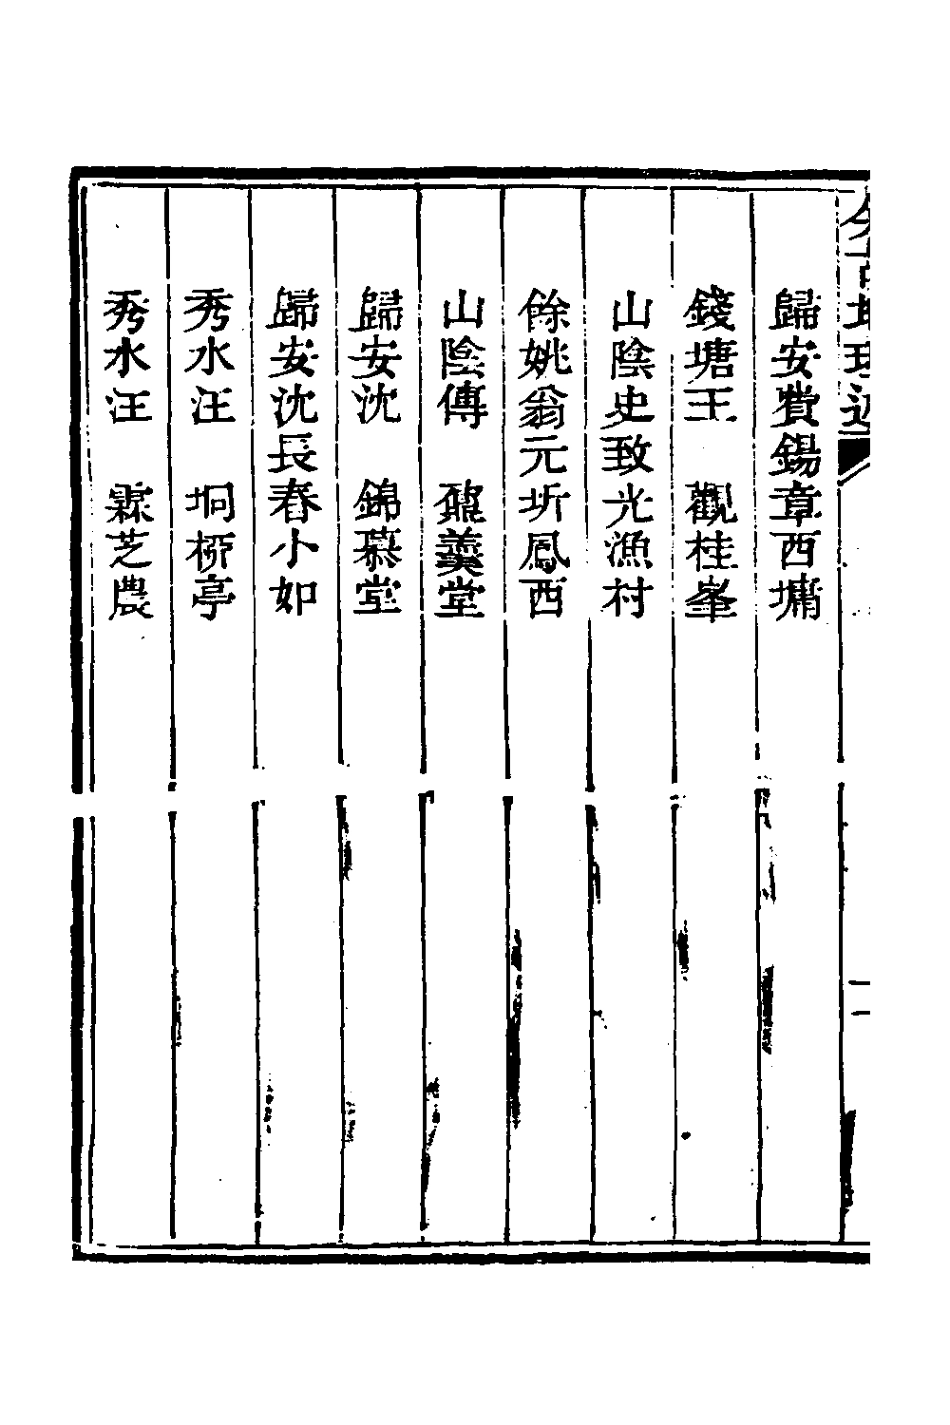 歸安費錫章西墉
錢塘王　觀桂峯
山陰史致光漁村
餘姚翁元圻鳳西
山陰傳　鼐羹堂
歸安沈　錦慕堂
歸安沈長春小如
秀水汪　坰桺亭
秀水汪　霖芝農